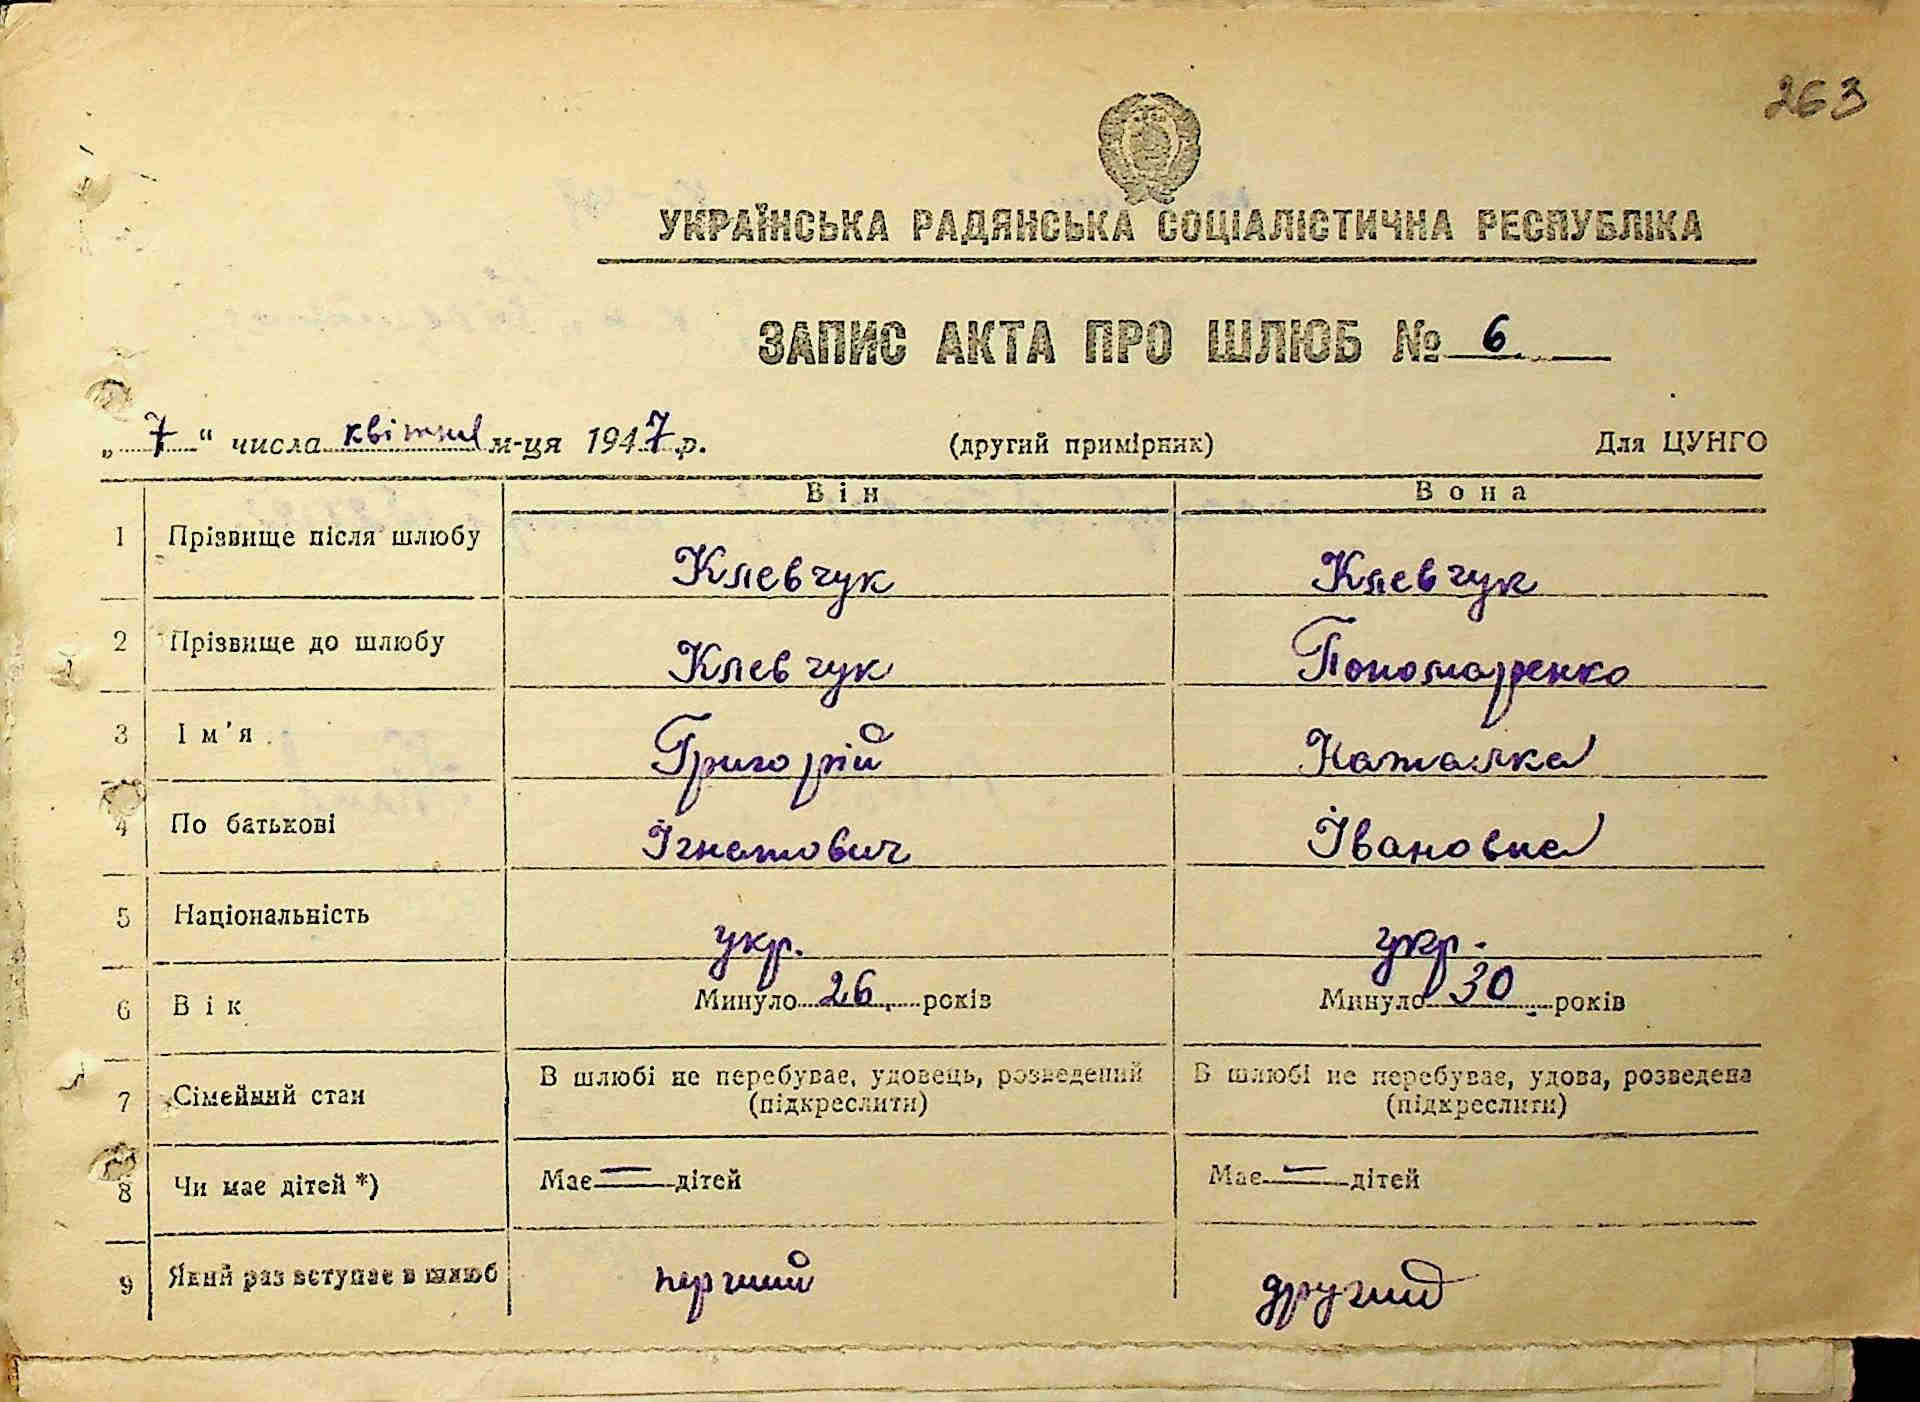 263
УКРАЇНСЬКА РАДЯНСЬКА СОЦІАЛІСТИЧНА РЕСПУБЛІКА
ЗАПИС АКТА ПРО ШЛЮБ № 6
„ 7 “ числа квітня м-ця 1947 р. (другий примірник) Для ЦУНГО
Він Вона
1 Прізвище після шлюбу Клевчук Клевчук
2 Прізвище до шлюбу Клевчук Пономаренко
3 Ім'я Григорій Наталка
4 По батькові Ігнатович Івановна
5 Національність укр. укр.
6 Вік Минуло 26 років Минуло 30 років
7 Сімейний стан В шлюбі не перебуває, удовець, розведений В шлюбі не перебуває, удова, розведена
(підкреслити) (підкреслити)
8 Чи має дітей *) Має — дітей Має — дітей
9 Який раз вступає в шлюб перший другий